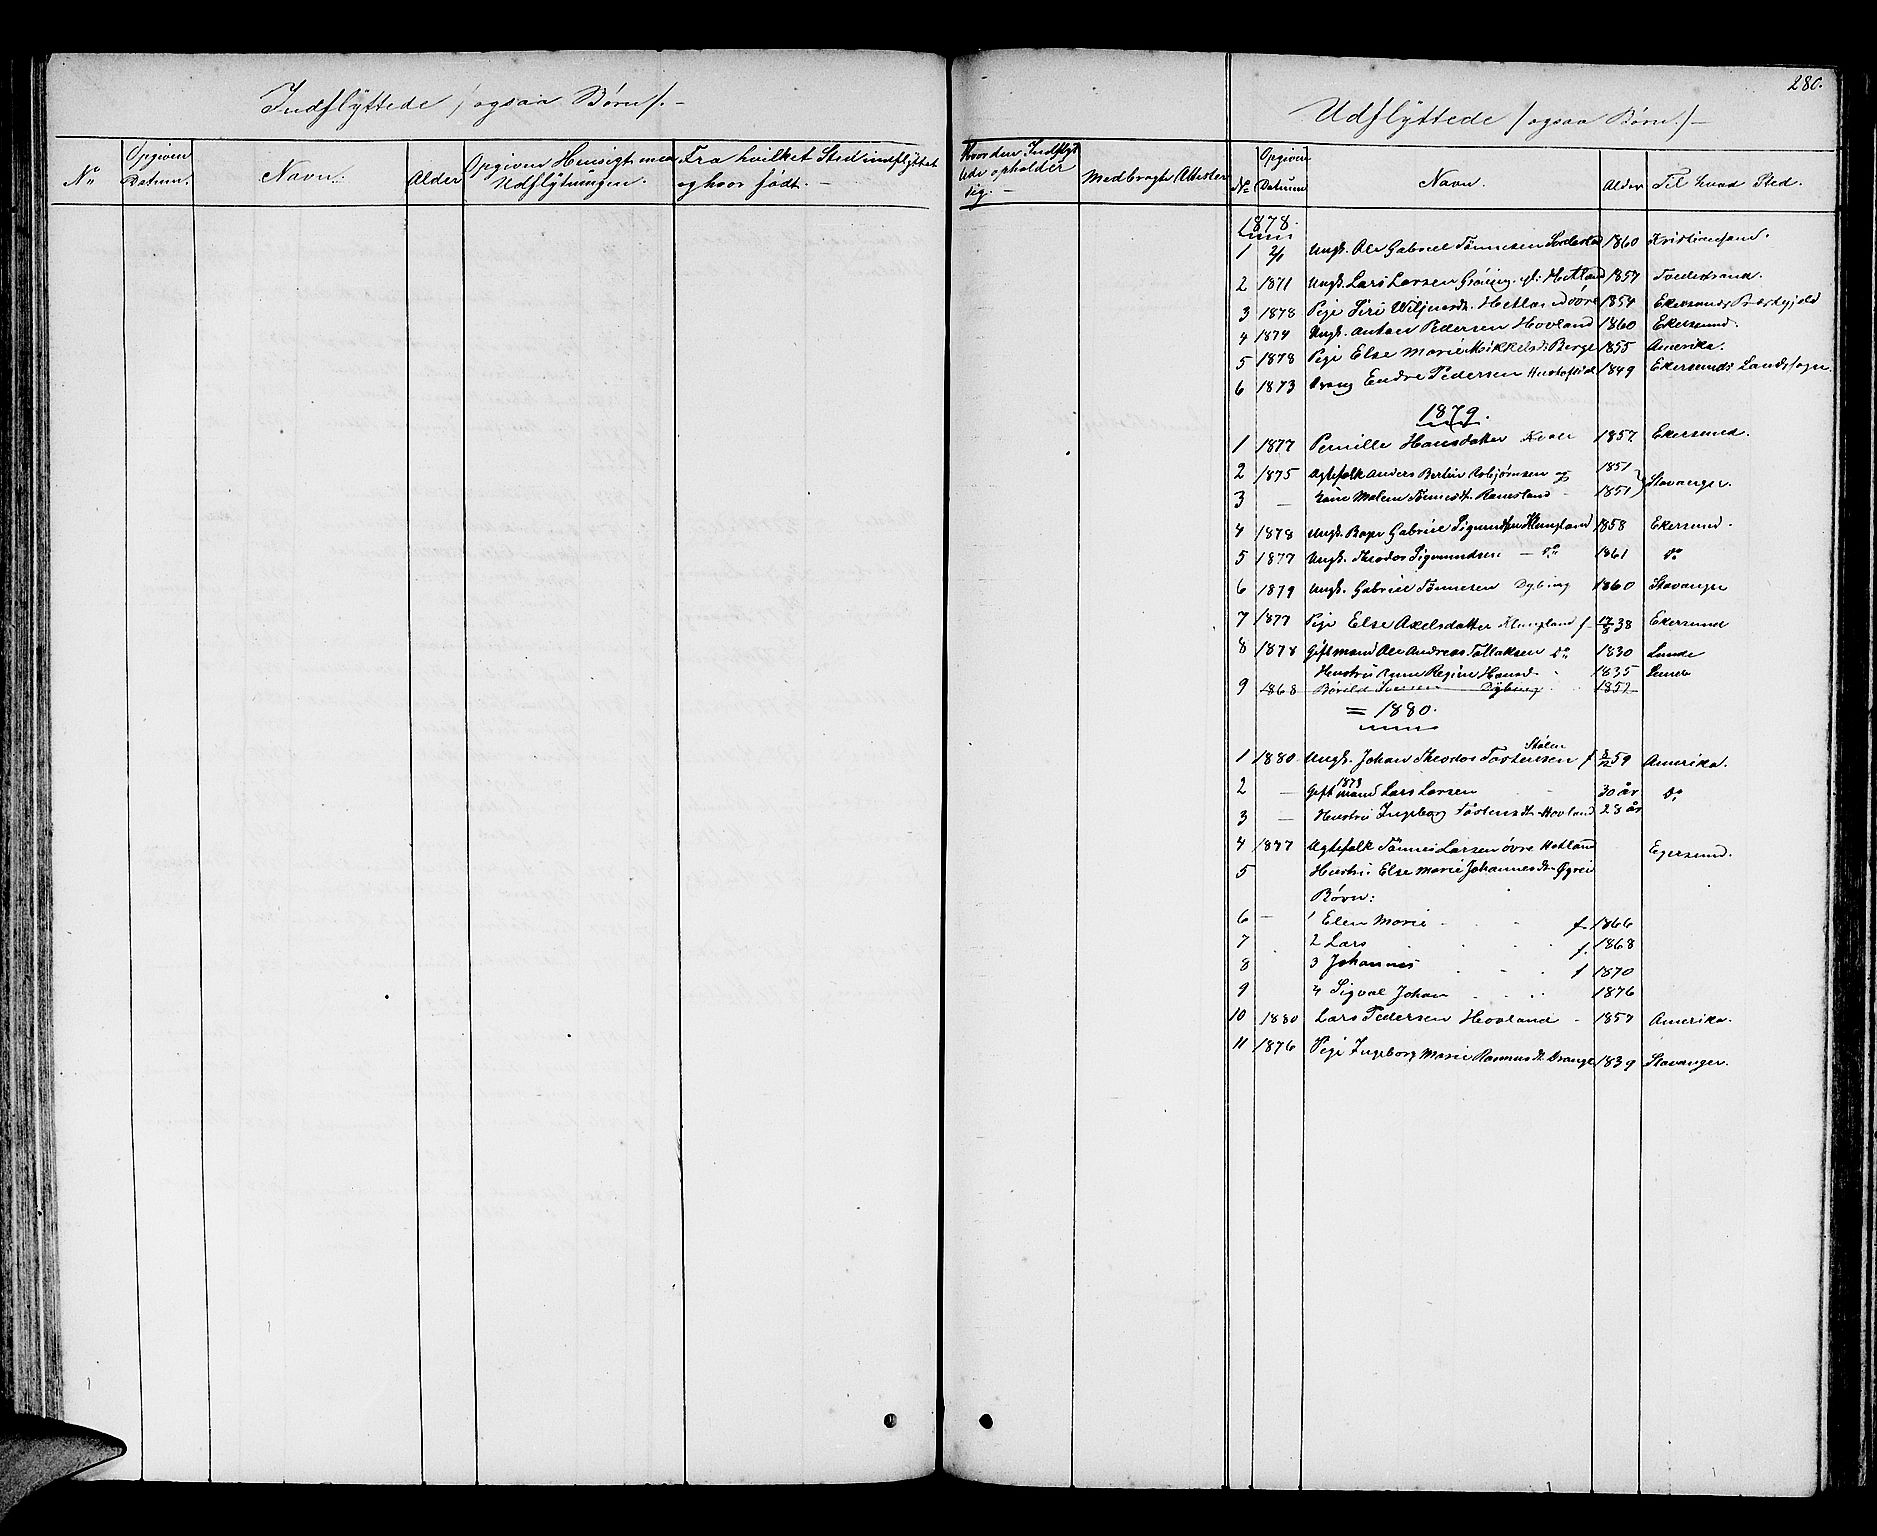 Indflyttede /ogsaa Børn/.-
No
Opgiven Datum.
Navn.
Alder
Opgiven Hensigt med Udflytningen.
Fra hvilket Sted indflyttet og hvor født. -
280.
Udflyttede /ogsaa Børn/-
Hvor den Indflyttede opholder sig. -
Medbragt Attester
No
Opgiven Datum
Navn.
Alder
Til hvad Sted.
1878.
1 2/1 Ungk. Ole Gabriel Tønnesen 1860 Kristiansand.
2 1871 Ungk. Lars Larsen Hetland 1857 Tvedestrand.
3 1878 Pige Siri Hetland øvre 1854 Ekersunds
4 1874 Ungk. Anton Pedersen Hovland 1860 Ekersund.
5 1878 Pige Else Marie Mikkelsd. Berge 1855 Amerika.
6 1873 Endre Pedersen 1849 Ekersunds Landsogn.
1879.
1 1877 Pernille Hansdatter 1857 Ekersund.
2 1875 Ægtefolk Anders Bertin Asbjørnsen og 1851 } Stavanger.
3 - Malene Tønnesdt. Ramsland - 1851
4 1878 Ungk. Gabriel Klungland 1858 Ekersund.
5 1877 Ungk. Theodor Sigmundsen - do 1861 do
6 1879 Ungk. Gabriel Tønnesen Dybing 1860 Stavanger
7 1877 Pige Else Axelsdatter Klungland f. 17/8 38 Ekersund
8 1878 Gift mand Ole Andreas Tollaksen do 1830 Lunde
Hustru Anne Regine Hansd. - 1835 Lunde
9 1868 Dybing 1852
= 1880.
Stølen
1 1880. Ungk. Johan Theodor Tostensen f 59 Amerika.
1873
2 - Gift mand Lars Larsen 30 år do
3 - Hustru Ingeborg Tostensdt. Hovland 28 år
4 1877 Ægtefolk Tønnes Larsen øvre Hetland Egersund.
5 Hustru Else Marie Johannesdt. Øgrei
Børn:
6 - 1 Elen Marie f. 1866
7 2 Lars f. 1868
8 3 Johannes f 1870
9 4 Sigval Johan 1876
10 1880 Lars Pedersen Hovland - 1857 Amerika.
11 1876 Pige Ingeborg Marie Rasmusdt. Drange 1839 Stavanger.